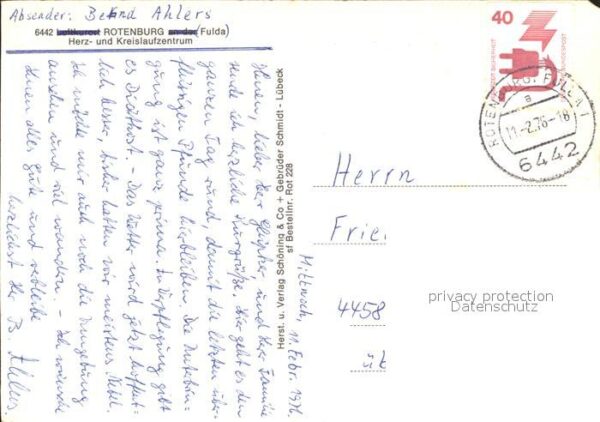 Absender: Bernd Ahlers
6442 Luftkurort ROTENBURG an der (Fulda)
Herz- und Kreislaufzentrum
Mittwoch, 11. Febr. 1976.
Ihnen, lieber Herr und Ihrer Familie
sende ich herzliche Kurgrüße. Hier geht es den
ganzen Tag rund, damit die letzten über-
flüssigen Pfunde hierbleiben. Die Unterbrin-
gung ist ganz prima. In Verpflegung gibt
es Diätkost. - Das Wetter wird jetzt hoffent-
lich besser, bisher hatten wir meistens Nebel.
Ich möchte mir auch noch die Umgebung
ansehen und viel wandern. - Ich wünsche
Ihnen alles Gute und verbleibe
herzlichst Ihr B. Ahlers.
Herst. u. Verlag Schöning & Co + Gebrüder Schmidt - Lübeck
sf Bestellnr. Rot 228
40
DEUTSCHE BUNDESPOST
ROTENBURG, FULDA 1
a
11.-2.76-18
6442
Herrn
Frie
4458
privacy protection
Datenschutz